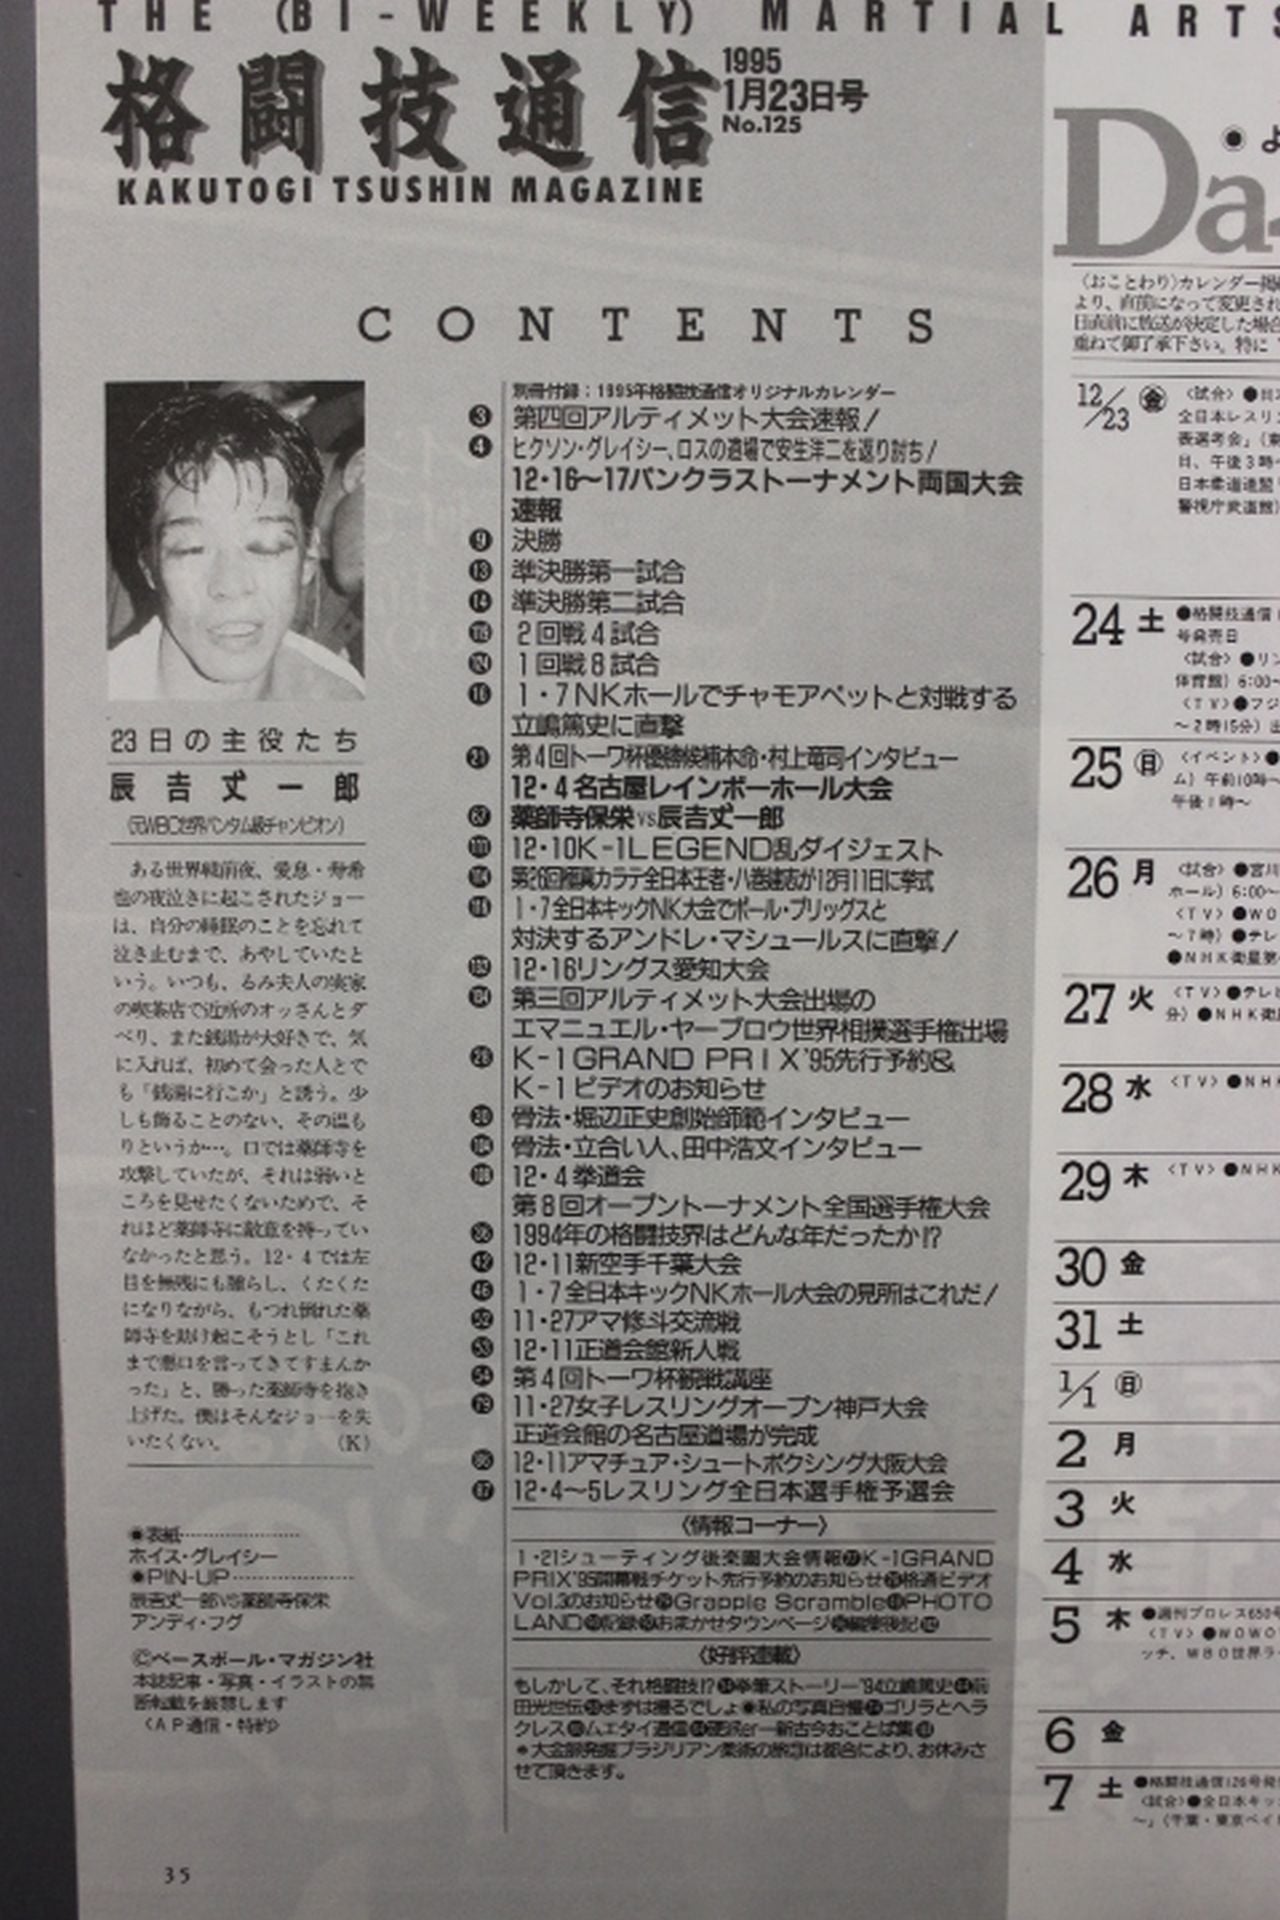 THE (BI-WEEKLY) MARTIAL ARTS
格闘技通信
1995
1月23日号
No.125
KAKUTOGI TSUSHIN MAGAZINE
CONTENTS
23日の主役たち
辰吉丈一郎
(元WBC世界バンタム級チャンピオン)
ある世界戦前夜、愛息・寿希
也の夜泣きに起こされたジョー
は、自分の睡眠のことを忘れて
泣き止むまで、あやしていたと
いう。いつも、るみ夫人の実家
の喫茶店で近所のオッさんとダ
べり、また銭湯が大好きで、気
に入れば、初めて会った人とで
も「銭湯に行こか」と誘う。少
しも飾ることのない、その温も
りというか…。口では薬師寺を
攻撃していたが、それは弱いと
ころを見せたくないためで、そ
れほど薬師寺に敵意を持ってい
なかったと思う。12・4では左
目を無残にも腫らし、くたくた
になりながら、もつれ倒れた薬
師寺を助け起こそうとし「これ
まで悪口を言ってきてすまんか
った」と、勝った薬師寺を抱き
上げた。僕はそんなジョーを失
いたくない。 (K)
●表紙
ホイス・グレイシー
●PIN-UP
辰吉丈一郎VS薬師寺保栄
アンディ・フグ
©ベースボール・マガジン社
本誌記事・写真・イラストの無
断転載を厳禁します
〈AP通信・特約〉
35
別冊付録：1995年格闘技通信オリジナルカレンダー
3 第四回アルティメット大会速報！
4 ヒクソン・グレイシー、ロスの道場で安生洋二を返り討ち！
12・16〜17パンクラストーナメント両国大会
速報
9 決勝
13 準決勝第一試合
14 準決勝第二試合
2回戦4試合
1回戦8試合
16 1・7NKホールでチャモアペットと対戦する
立嶋篤史に直撃
21 第4回トーワ杯優勝候補本命・村上竜司インタビュー
12・4名古屋レインボーホール大会
67 薬師寺保栄vs辰吉丈一郎
12・10K-1LEGEND乱ダイジェスト
第26回極真カラテ全日本王者・八巻建志が12月11日に挙式
1・7全日本キックNK大会でポール・ブリッグスと
対決するアンドレ・マシュールスに直撃！
12・16リングス愛知大会
第三回アルティメット大会出場の
エマニュエル・ヤーブロウ世界相撲選手権出場
26 K-1GRAND PRIX'95先行予約&
K-1ビデオのお知らせ
30 骨法・堀辺正史創始師範インタビュー
骨法・立合い人、田中浩文インタビュー
12・4拳道会
第8回オープントーナメント全国選手権大会
36 1994年の格闘技界はどんな年だったか!?
42 12・11新空手千葉大会
46 1・7全日本キックNKホール大会の見所はこれだ！
52 11・27アマ修斗交流戦
53 12・11正道会館新人戦
54 第4回トーワ杯観戦講座
79 11・27女子レスリングオープン神戸大会
正道会館の名古屋道場が完成
86 12・11アマチュア・シュートボクシング大阪大会
87 12・4〜5レスリング全日本選手権予選会
〈情報コーナー〉
1・21シューティング後楽園大会情報 K-1GRAND
PRIX'95開幕戦チケット先行予約のお知らせ 格通ビデオ
Vol.3のお知らせ Grapple Scramble PHOTO
LAND 記録 おまかせタウンページ 編集後記
〈好評連載〉
もしかして、それ格闘技!? 拳筆ストーリー'94立嶋篤史 前
田光世伝 まずは撮るでしょ●私の写真自慢 ゴリラとヘラ
クレス ムエタイ通信 硬派er―新古今おことば集
＊大会部発掘ブラジリアン柔術の旅は都合により、お休みさ
せて頂きます。
Da
〈おことわり〉カレンダー掲
より、直前になって変更され
日直前に放送が決定した場合
重ねて御了承下さい。特に
12/23 金 〈試合〉●
全日本レスリ
表選考会」（東
日、午後3時
日本柔道連盟
警視庁武道館）
24 土 ●格闘技通信
号発売日
〈試合〉●リン
体育館）6:00〜
〈TV〉●フジ
〜2時15分）出
25 日 〈イベント〉●
ム）午前10時〜
午後1時〜
26 月 〈試合〉●宮川
ホール）6:00〜
〈TV〉●WO
〜7時）●テレ
●NHK衛星第
27 火 〈TV〉●テレビ
分）●NHK衛
28 水 〈TV〉●NHK
29 木 〈TV〉●NHK
30 金
31 土
1/1 日
2 月
3 火
4 水
5 木 ●週刊プロレス650号
〈TV〉●WOWO
ッチ、WBO世界ラ
6 金
7 土 ●格闘技通信126号発
〈試合〉●全日本キッ
〜」（千葉・東京ベイ